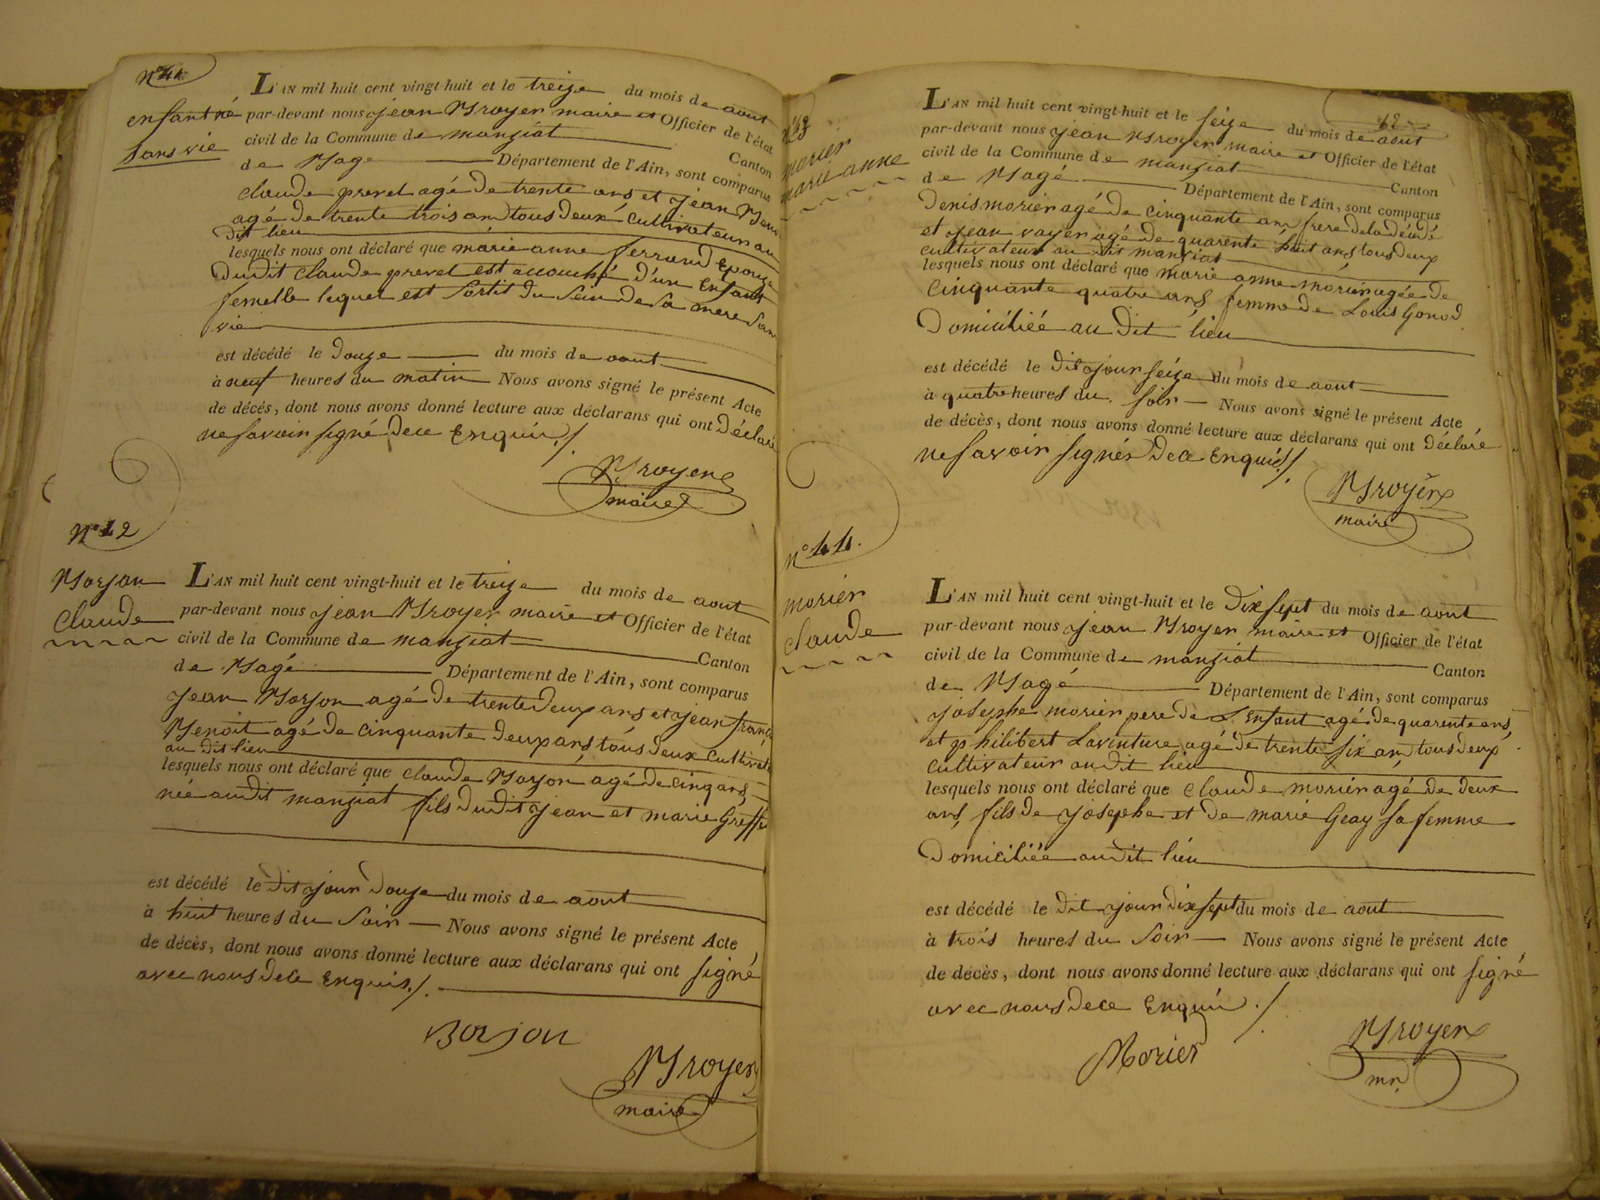 N° 41
enfant né
sans vie
L'AN mil huit cent vingt-huit et le treize du mois de aout
par-devant nous jean Broyer maire et Officier de l'état
civil de la Commune de manziat Canton
de Bagé Département de l'Ain, sont comparus
Claude prevel agé de trente ans et jean
agé de trente trois an tous deux Cultivateur au
dit lieu
lesquels nous ont déclaré que marie anne ferrand Epouze
dudit Claude prevel est accouché d'un Enfant
femelle lequel est Sortit du Sein de Sa mere San
vie
est décédé le douze du mois de aout
à neuf heures du matin Nous avons signé le présent Acte
de décés, dont nous avons donné lecture aux déclarans qui ont Déclaré
ne Savoir signé de ce Enquis ./.
Broyer
maire
N° 42
Borjon
Claude
L'AN mil huit cent vingt-huit et le treize du mois de aout
par-devant nous jean Broyer maire et Officier de l'état
civil de la Commune de manziat Canton
de Bagé Département de l'Ain, sont comparus
jean Borjon agé de trente deux ans et jean françois
Benoit agé de cinquante deux ans tous deux Cultivate
au dit lieu
lesquels nous ont déclaré que Claude Borjon agé de cinq ans
née audit manziat fils dudit jean et marie
est décédé le dit jour douze du mois de aout
à huit heures du Soir Nous avons signé le présent Acte
de décès, dont nous avons donné lecture aux déclarans qui ont signé
avec nous de ce Enquis ./.
Borjon
Broyer
maire
42
N° 43
morier
marie anne
L'AN mil huit cent vingt-huit et le seize du mois de aout
par-devant nous jean Broyer maire et Officier de l'état
civil de la Commune de manziat Canton
de Bagé Département de l'Ain, sont comparus
Denis morier agé de cinquante an frere de la décédé
et jean voyer agé de quarente huit ans tous deux
cultivateur au dit manziat
lesquels nous ont déclaré que marie anne morier agée de
cinquante quatre ans femme de Louis Gonod
Domiciliée au dit lieu
est décédé le dit jour seize du mois de aout
à quatre heures du soir Nous avons signé le présent Acte
de décès, dont nous avons donné lecture aux déclarans qui ont déclaré
ne Savoir signés de ce Enquis ./.
Broyer
maire
N° 44.
morier
claude
L'AN mil huit cent vingt-huit et le Dix sept du mois de aout
par-devant nous jean Broyer maire et Officier de l'état
civil de la Commune de manziat Canton
de Bagé Département de l'Ain, sont comparus
josephe morier pere de L'Enfant agé de quarente ans
et philibert Laventure agé de trente six an tous deux
Cultivateur au dit lieu
lesquels nous ont déclaré que Claude morier agé de deux
ans fils de josephe et de marie Geay sa femme
Domiciliée au dit lieu
est décédé le dit jour dix sept du mois de aout
à trois heures du Soir Nous avons signé le présent Acte
de décès, dont nous avons donné lecture aux déclarans qui ont signé
avec nous de ce Enquis ./.
Morier
Broyer
mr.